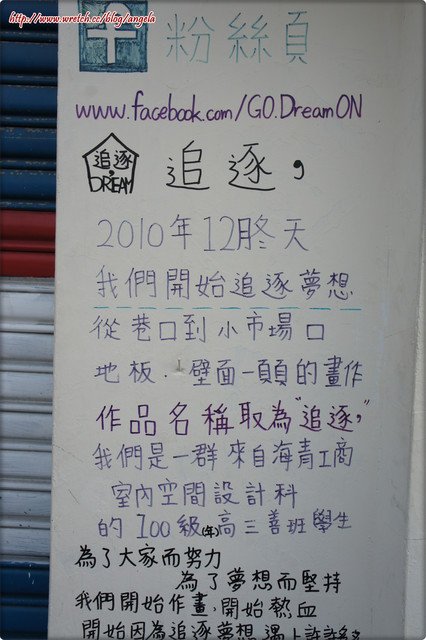 http://www.wretch.cc/blog/angela
粉絲頁
www.facebook.com/GO.DreamON
追逐,
DREAM
追逐,
2010年12月冬天
我們開始追逐夢想
從巷口到小市場口
地板.壁面一頁頁的畫作
作品名稱取為"追逐,"
我們是一群來自海青工商
室內空間設計科
的100級(年)高三善班學生
為了大家而努力
為了夢想而堅持
我們開始作畫,開始熱血
開始因為追逐夢想遇上許許多多